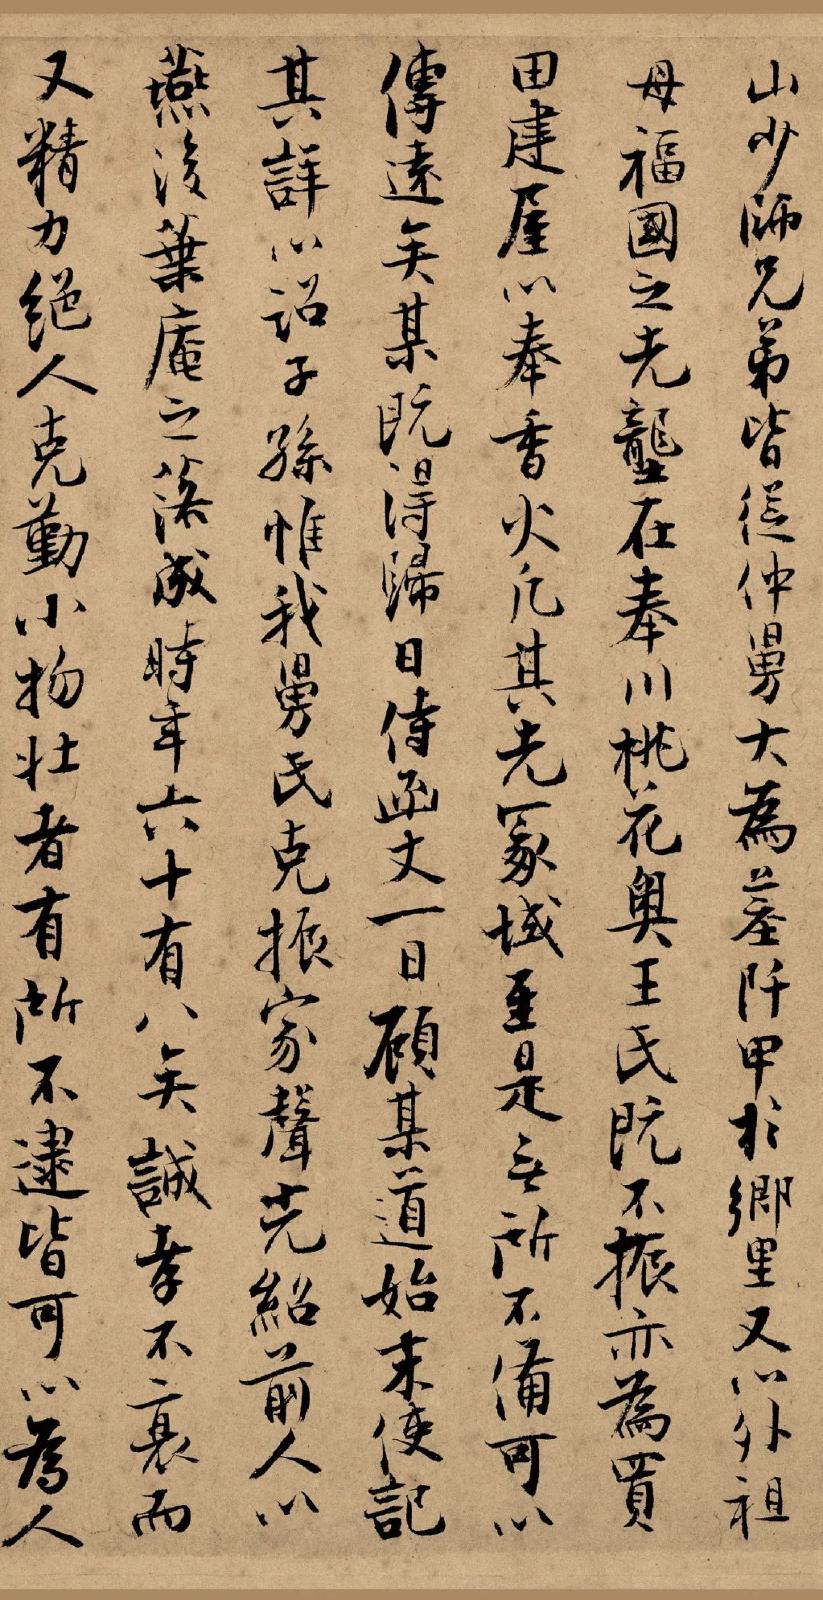 山少師兄弟皆從仲舅大為墓阡甲於鄉里又以外祖
母福國之先壟在奉川桃花奧王氏既不振亦為買
田建屋以奉香火凡其先冢域至是无所不備可以
傳遠矣某既得歸日侍函丈一日顧某道始末使記
其詳以詔子孫惟我舅氏克振家聲光紹前人以
燕後葉庵之落成時年六十有八矣誠孝不衰而
又精力絕人克勤小物壯者有所不逮皆可以為人